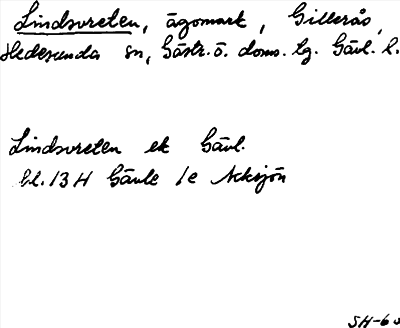 Lindsvreten, ägomark, Gillerås,
Hedesunda sn, Gästr.ö. doms. lg. Gävl. l.
Lindsvreten ek Gävl.
bl. 13 H Gävle 1e Acksjön
SH-60